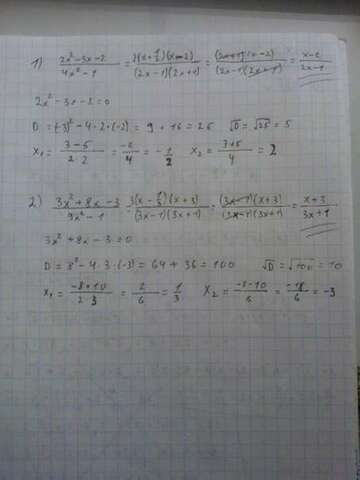 1) (2x² - 3x - 2)/(4x² - 1) = 2(x + 1/2)(x - 2)/((2x - 1)(2x + 1)) = (2x + 1)(x - 2)/((2x - 1)(2x + 1)) = (x - 2)/(2x - 1)
2x² - 3x - 2 = 0
D = (-3)² - 4 · 2 · (-2) = 9 + 16 = 25 √D = √25 = 5
x₁ = (3 - 5)/(2·2) = -2/4 = -1/2 x₂ = (3 + 5)/4 = 2
2) (3x² + 8x - 3)/(9x² - 1) = 3(x - 1/3)(x + 3)/((3x - 1)(3x + 1)) = (3x - 1)(x + 3)/((3x - 1)(3x + 1)) = (x + 3)/(3x + 1)
3x² + 8x - 3 = 0
D = 8² - 4 · 3 · (-3) = 64 + 36 = 100 √D = √100 = 10
x₁ = (-8 + 10)/(2 · 3) = 2/6 = 1/3 x₂ = (-8 - 10)/6 = -18/6 = -3